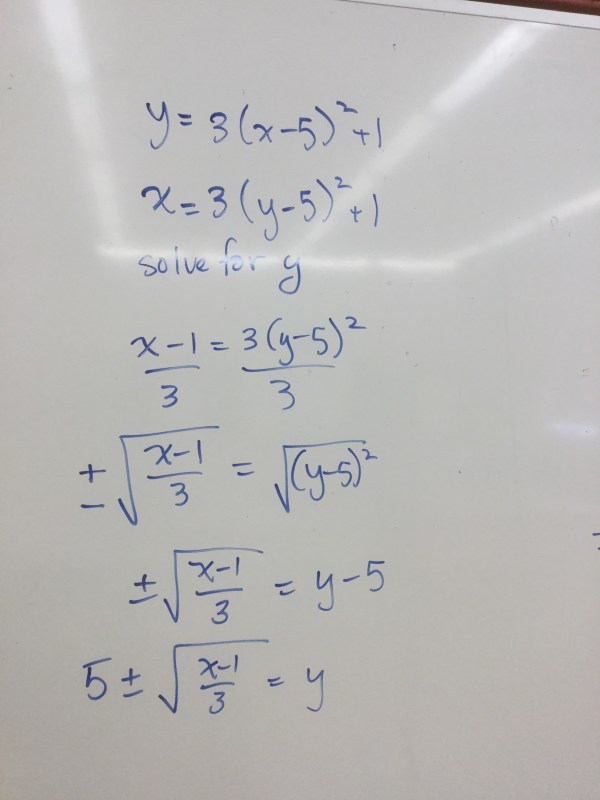 y = 3(x-5)² + 1
x = 3(y-5)² + 1
solve for y
x-1 = 3(y-5)²
3 3
± √((x-1)/3) = √((y-5)²)
± √((x-1)/3) = y-5
5 ± √((x-1)/3) = y